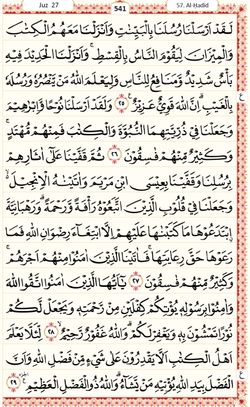 Juz 27 541 57. Al-Hadid
لَقَدْ أَرْسَلْنَا رُسُلَنَا بِالْبَيِّنٰتِ وَأَنْزَلْنَا مَعَهُمُ الْكِتٰبَ
وَالْمِيْزَانَ لِيَقُوْمَ النَّاسُ بِالْقِسْطِ ۚ وَأَنْزَلْنَا الْحَدِيْدَ فِيْهِ
بَأْسٌ شَدِيْدٌ وَّمَنَافِعُ لِلنَّاسِ وَلِيَعْلَمَ اللّٰهُ مَنْ يَّنْصُرُهٗ وَرُسُلَهٗ
بِالْغَيْبِ ۗ إِنَّ اللّٰهَ قَوِيٌّ عَزِيْزٌ ٢٥ وَلَقَدْ أَرْسَلْنَا نُوْحًا وَّإِبْرٰهِيْمَ
وَجَعَلْنَا فِيْ ذُرِّيَّتِهِمَا النُّبُوَّةَ وَالْكِتٰبَ فَمِنْهُمْ مُّهْتَدٍ ۚ
وَكَثِيْرٌ مِّنْهُمْ فٰسِقُوْنَ ٢٦ ثُمَّ قَفَّيْنَا عَلٰٓى اٰثَارِهِمْ
بِرُسُلِنَا وَقَفَّيْنَا بِعِيْسَى ابْنِ مَرْيَمَ وَاٰتَيْنٰهُ الْإِنْجِيْلَ ۙ
وَجَعَلْنَا فِيْ قُلُوْبِ الَّذِيْنَ اتَّبَعُوْهُ رَأْفَةً وَّرَحْمَةً ۗ وَرَهْبَانِيَّةَ
ۨابْتَدَعُوْهَا مَا كَتَبْنٰهَا عَلَيْهِمْ إِلَّا ابْتِغَآءَ رِضْوَانِ اللّٰهِ فَمَا
رَعَوْهَا حَقَّ رِعَايَتِهَا ۚ فَاٰتَيْنَا الَّذِيْنَ اٰمَنُوْا مِنْهُمْ أَجْرَهُمْ ۚ
وَكَثِيْرٌ مِّنْهُمْ فٰسِقُوْنَ ٢٧ يٰٓأَيُّهَا الَّذِيْنَ اٰمَنُوا اتَّقُوا اللّٰهَ
وَاٰمِنُوْا بِرَسُوْلِهٖ يُؤْتِكُمْ كِفْلَيْنِ مِنْ رَّحْمَتِهٖ وَيَجْعَلْ لَّكُمْ
نُوْرًا تَمْشُوْنَ بِهٖ وَيَغْفِرْ لَكُمْ ۗ وَاللّٰهُ غَفُوْرٌ رَّحِيْمٌ ٢٨ لِّئَلَّا يَعْلَمَ
أَهْلُ الْكِتٰبِ أَلَّا يَقْدِرُوْنَ عَلٰى شَيْءٍ مِّنْ فَضْلِ اللّٰهِ وَأَنَّ
الْفَضْلَ بِيَدِ اللّٰهِ يُؤْتِيْهِ مَنْ يَّشَآءُ ۗ وَاللّٰهُ ذُو الْفَضْلِ الْعَظِيْمِ ٢٩